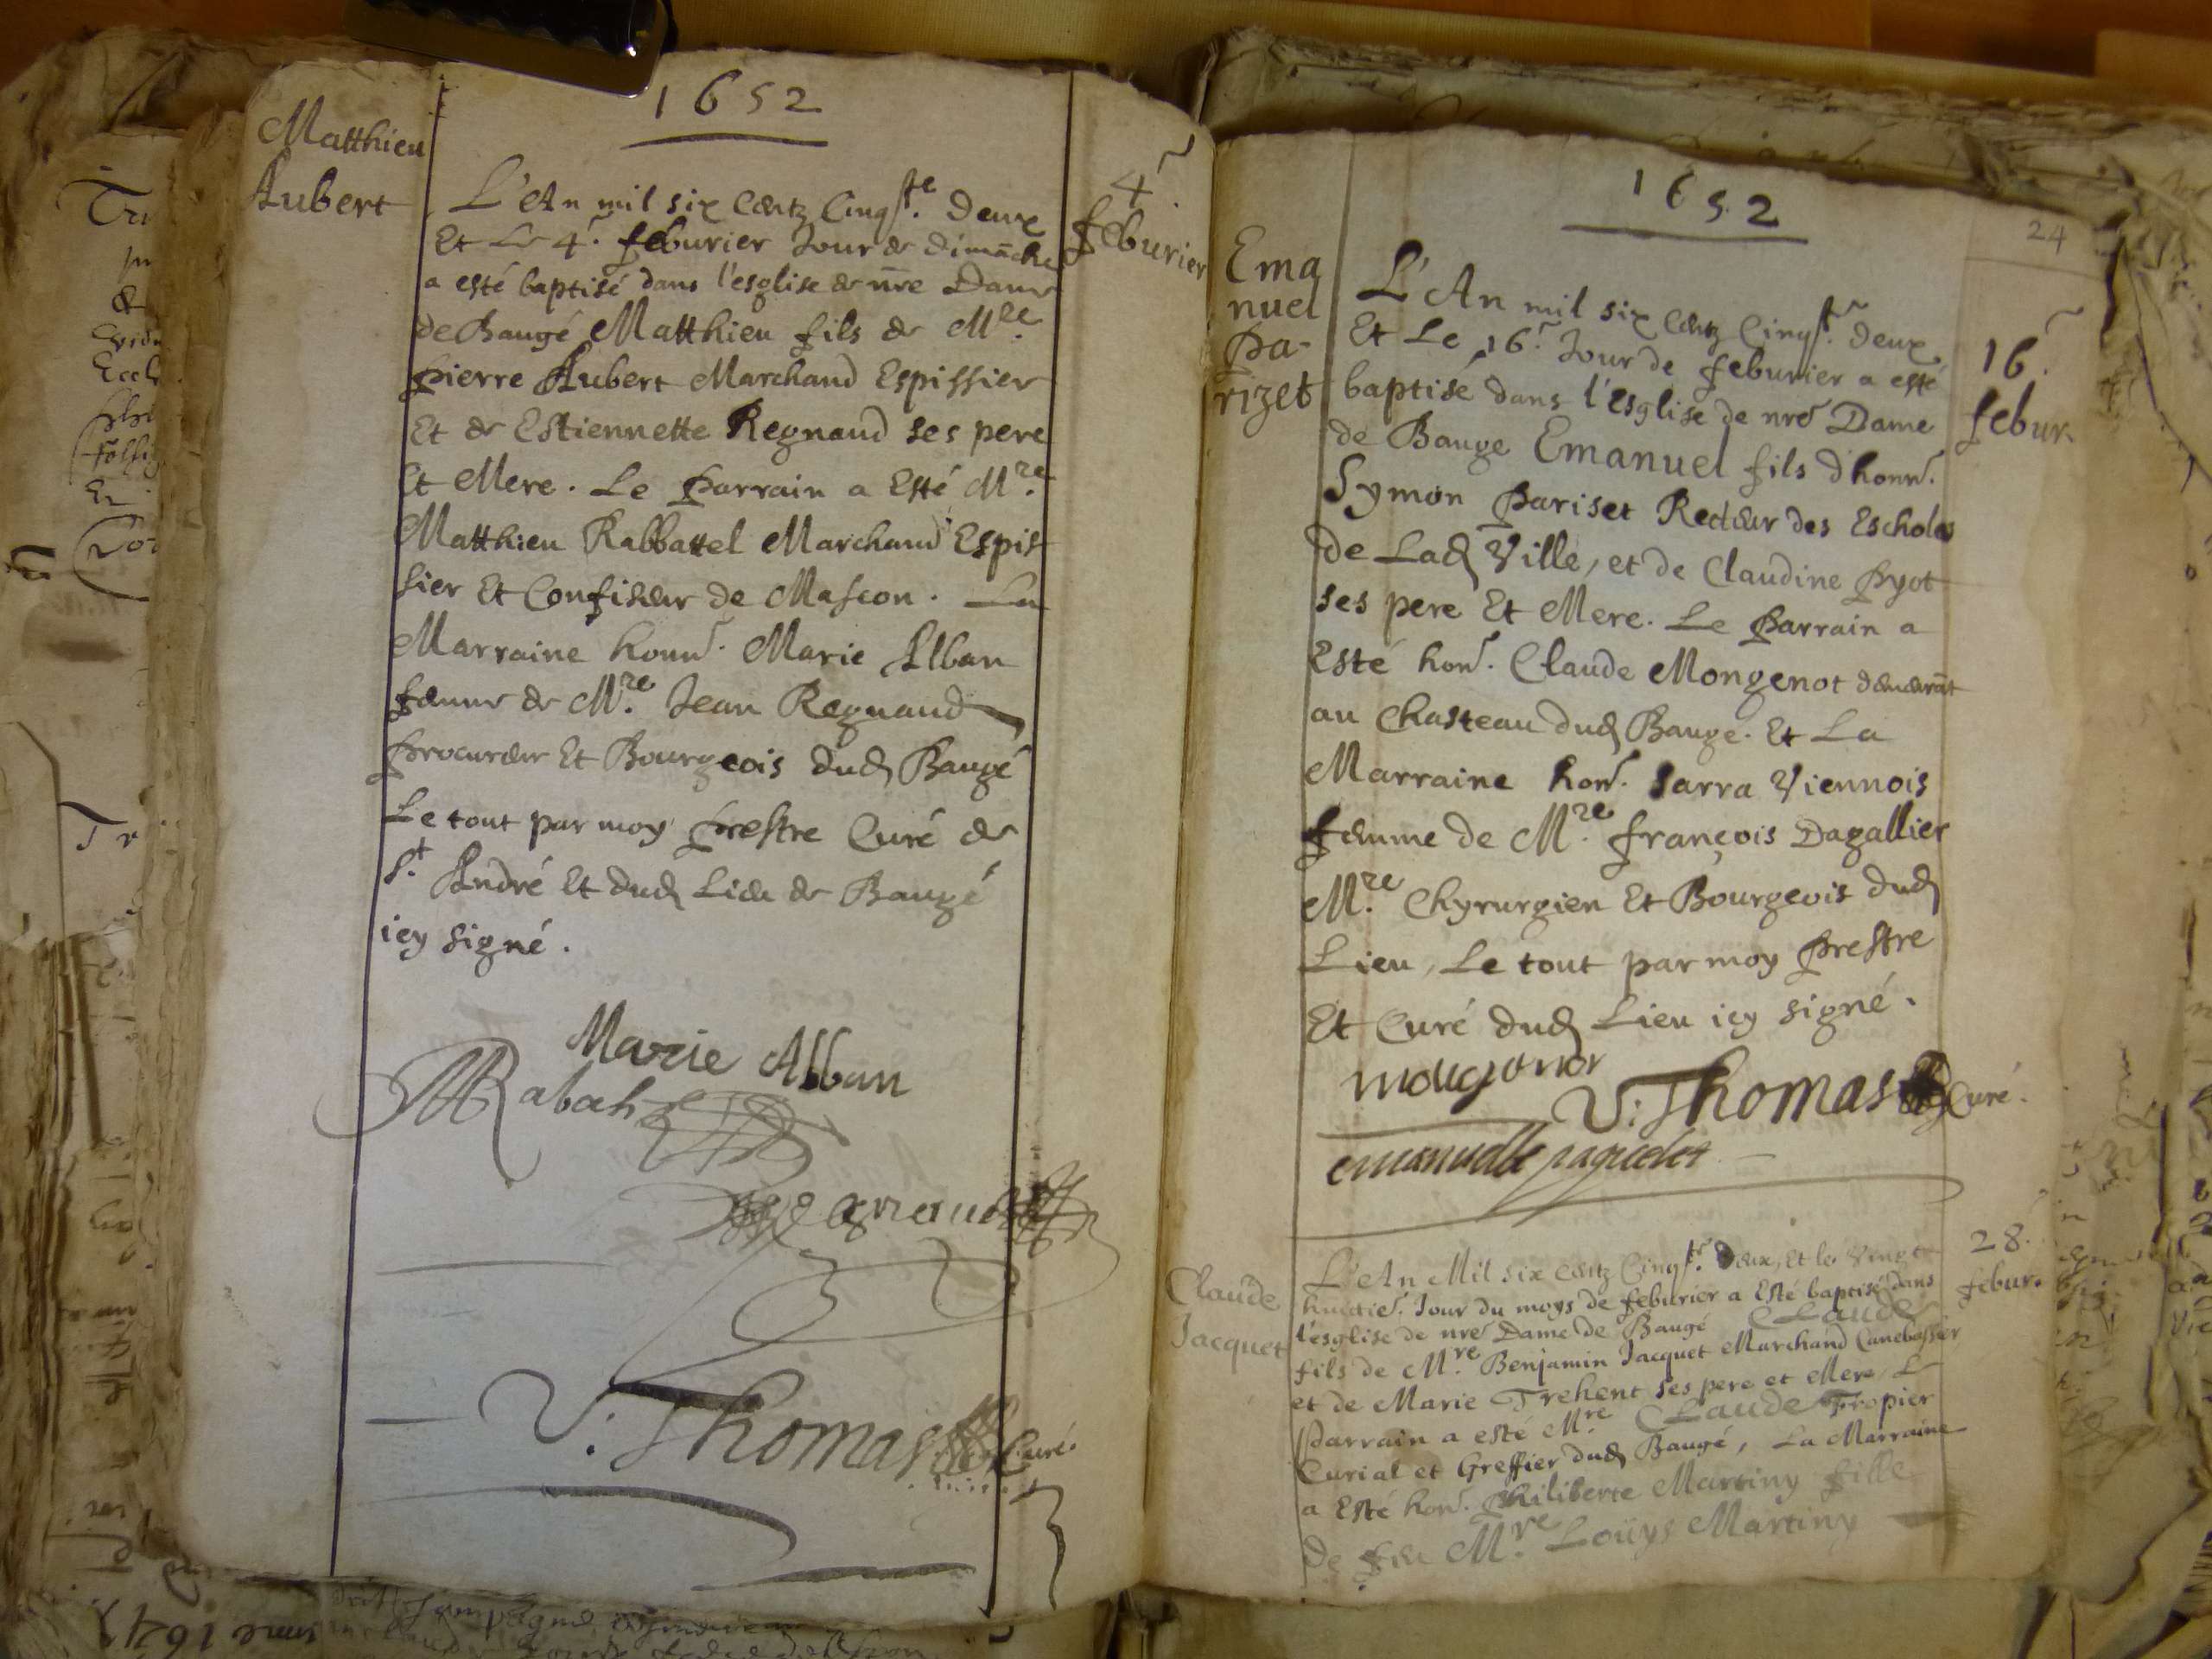 1652
Matthieu
Aubert
4e
feburier
L'An mil six centz Cinqte. deux
Et Le 4e. feburier Jour de dimãche
a esté baptisé dans l'esglise de nr̃e Dame
de Baugé Matthieu fils de Mre.
Pierre Aubert Marchand Espissier
Et de Estiennette Regnaud ses pere
Et Mere. Le Parrain a Esté Mre.
Matthieu Rabbattel Marchand Espis
sier Et Confiseur de Mascon. La
Marraine honn. Marie Alban
femme de Mre. Jean Regnaud
Procureur Et Bourgeois dud Baugé
Le tout par moy Prestre Curé de
St. André Et dud Lieu de Baugé
icy signé.
Marie Alban
MRabat
Regnaud
V: Thomas Curé.
1652
24
Ema
nuel
Pa-
rizet
16.
febur.
L'An mil six centz Cinqte. deux
Et Le 16e. Jour de feburier a esté
baptisé dans l'Esglise de nre Dame
de Bauge Emanuel fils d'honn.
Symon Pariset Recteur des Escholes
de Lad Ville, et de Claudine Pyot
ses pere Et Mere. Le Parrain a
Esté hon. Claude Mongenot demeurãt
au Chasteau dud Bauge. Et La
Marraine hon. Sarra Viennois
femme de Mre. françois Dagallier
Mre. Chyrurgien Et Bourgeois dud
Lieu, Le tout par moy Prestre
Et Curé dud Lieu icy signé.
mougonor
V: Thomas Curé.
emanuelle
Claude
Jacquet
28.
febur.
L'An Mil six centz Cinqte. Deux, Et le Vingt
huictie. Jour du moys de feburier a Esté baptisé dans
l'esglise de nre Dame de Baugé Claude
fils de Mre. Benjamin Jacquet Marchand Canebassier
et de Marie Trehent ses pere et Mere, L
Parrain a esté Mre Claude Tropier
Curial et Greffier dud Baugé, La Marraine
a Esté hon. Philiberte Martiny fille
de feu Mre. Loüys Martiny